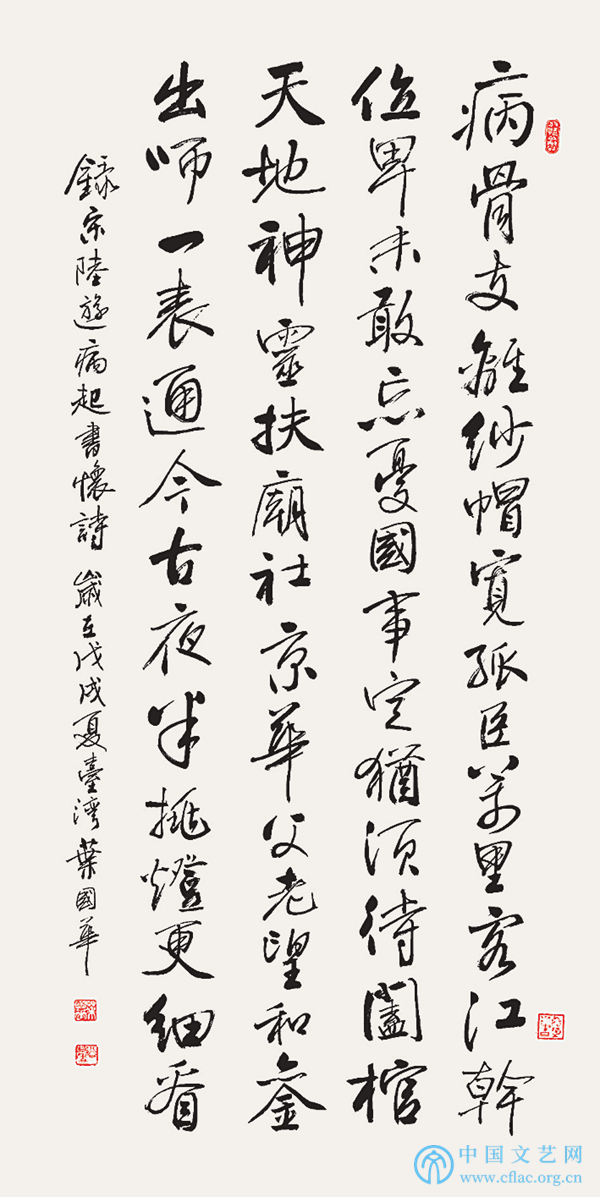 病骨支離紗帽寬孤臣萬里客江幹
位卑未敢忘憂國事定猶須待闔棺
天地神靈扶廟社京華父老望和鑾
出師一表通今古夜半挑燈更細看
錄宋陸遊病起書懷詩 歲在戊戌夏臺灣葉國華
中国文艺网
www.cflac.org.cn